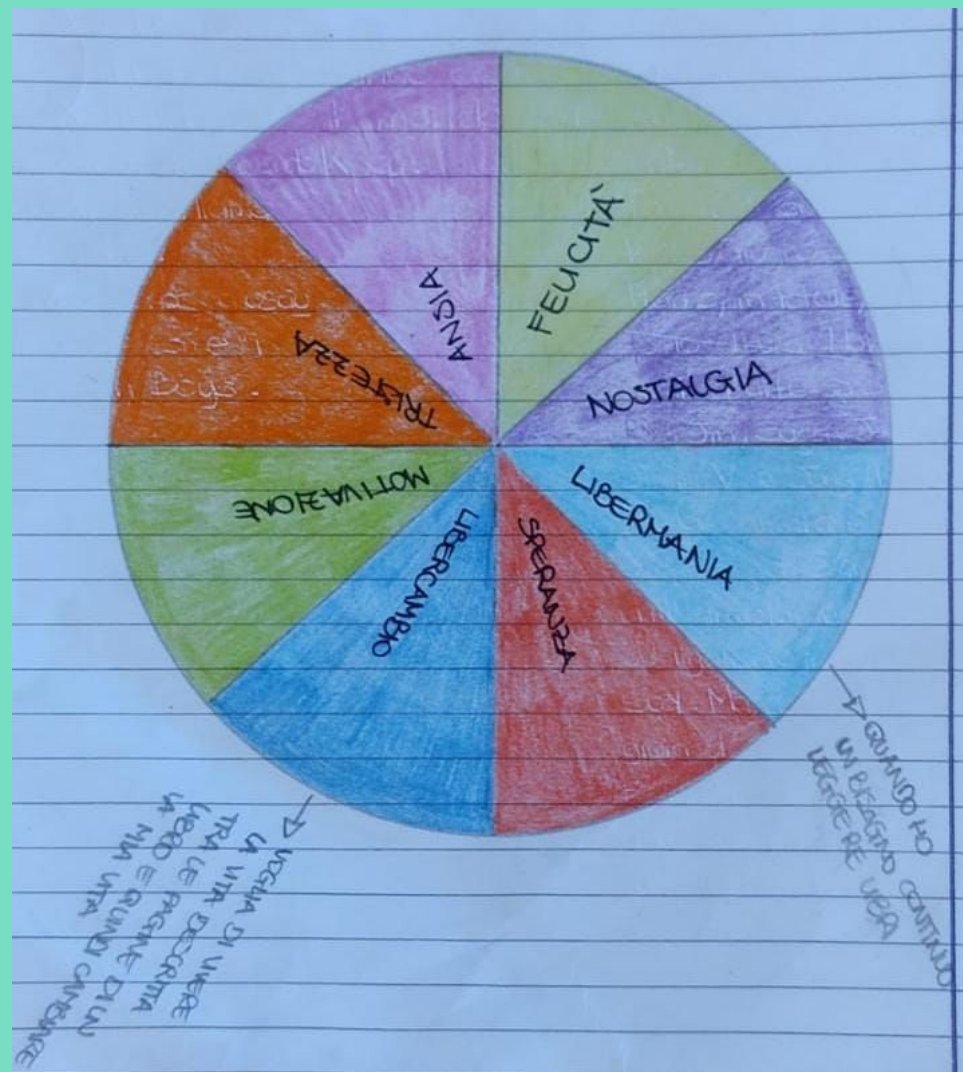 FELICITÀ
NOSTALGIA
LIBERMANIA
SPERANZA
LIBERCAMBIO
MOTIVAZIONE
TRISTEZZA
ANSIA
QUANDO HO
UN BISOGNO CONTINUO
LEGGERE LIBRI
VOGLIA DI VIVERE
LA VITA DESCRITTA
TRA LE PAGINE DI UN
LIBRO E QUINDI CAMBIARE
LA MIA VITA
Boys.